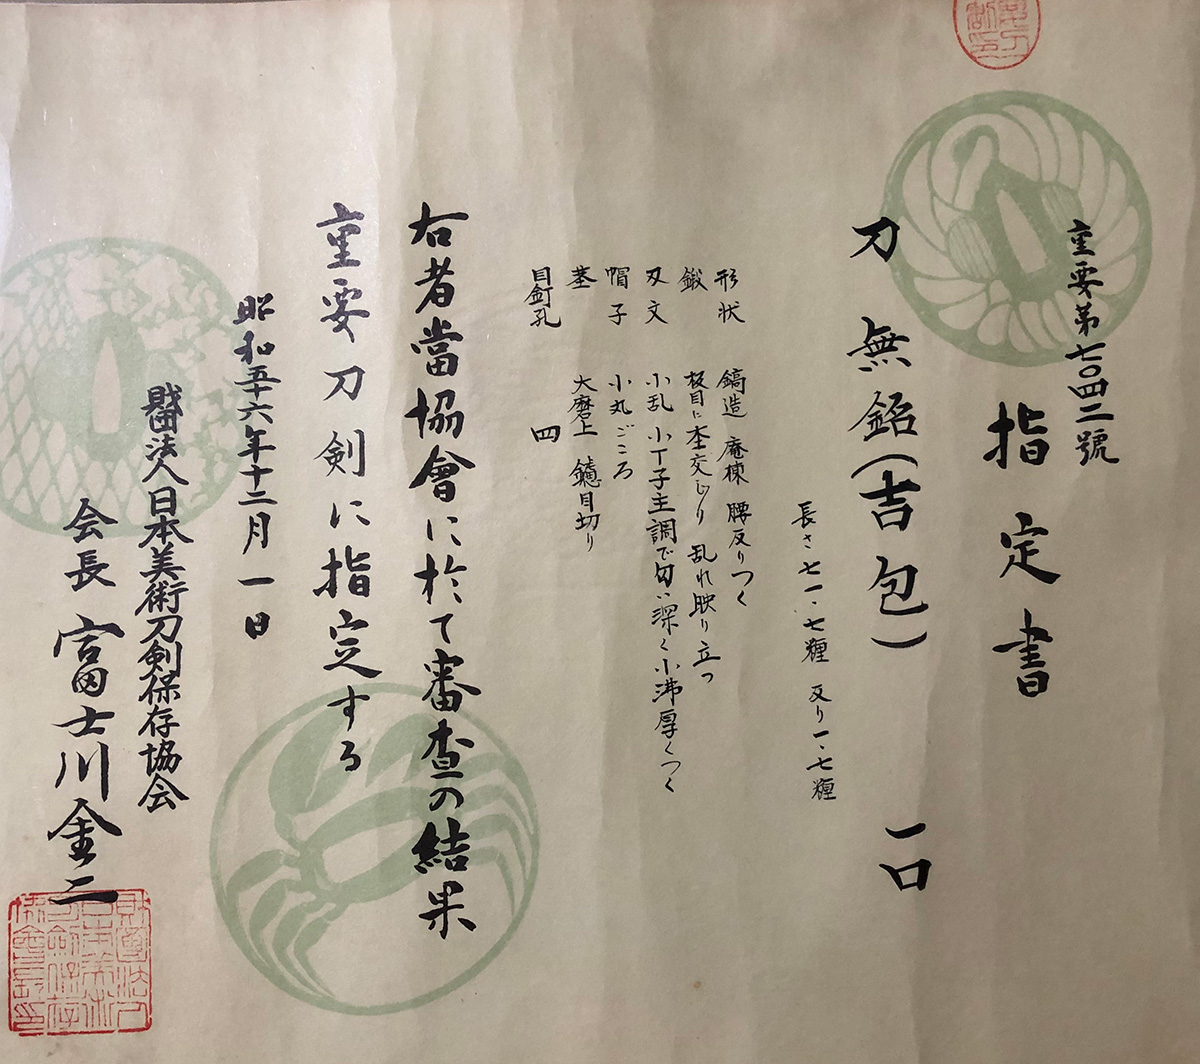 重要第七〇四二號
指定書
刀 無銘(吉包) 一口
長さ七一、七糎 反り一、七糎
形状 鎬造 庵棟 腰反りつく
鍛 板目に杢交じり 乱れ映り立つ
刄文 小乱 小丁子主調で匂い深く小沸厚くつく
帽子 小丸ごころ
茎 大磨上 鑢目切り
目釘孔 四
右者當協會に於て審査の結果
重要刀剣に指定する
昭和五十六年十二月一日
財団法人日本美術刀剣保存協会
会長 富士川金二